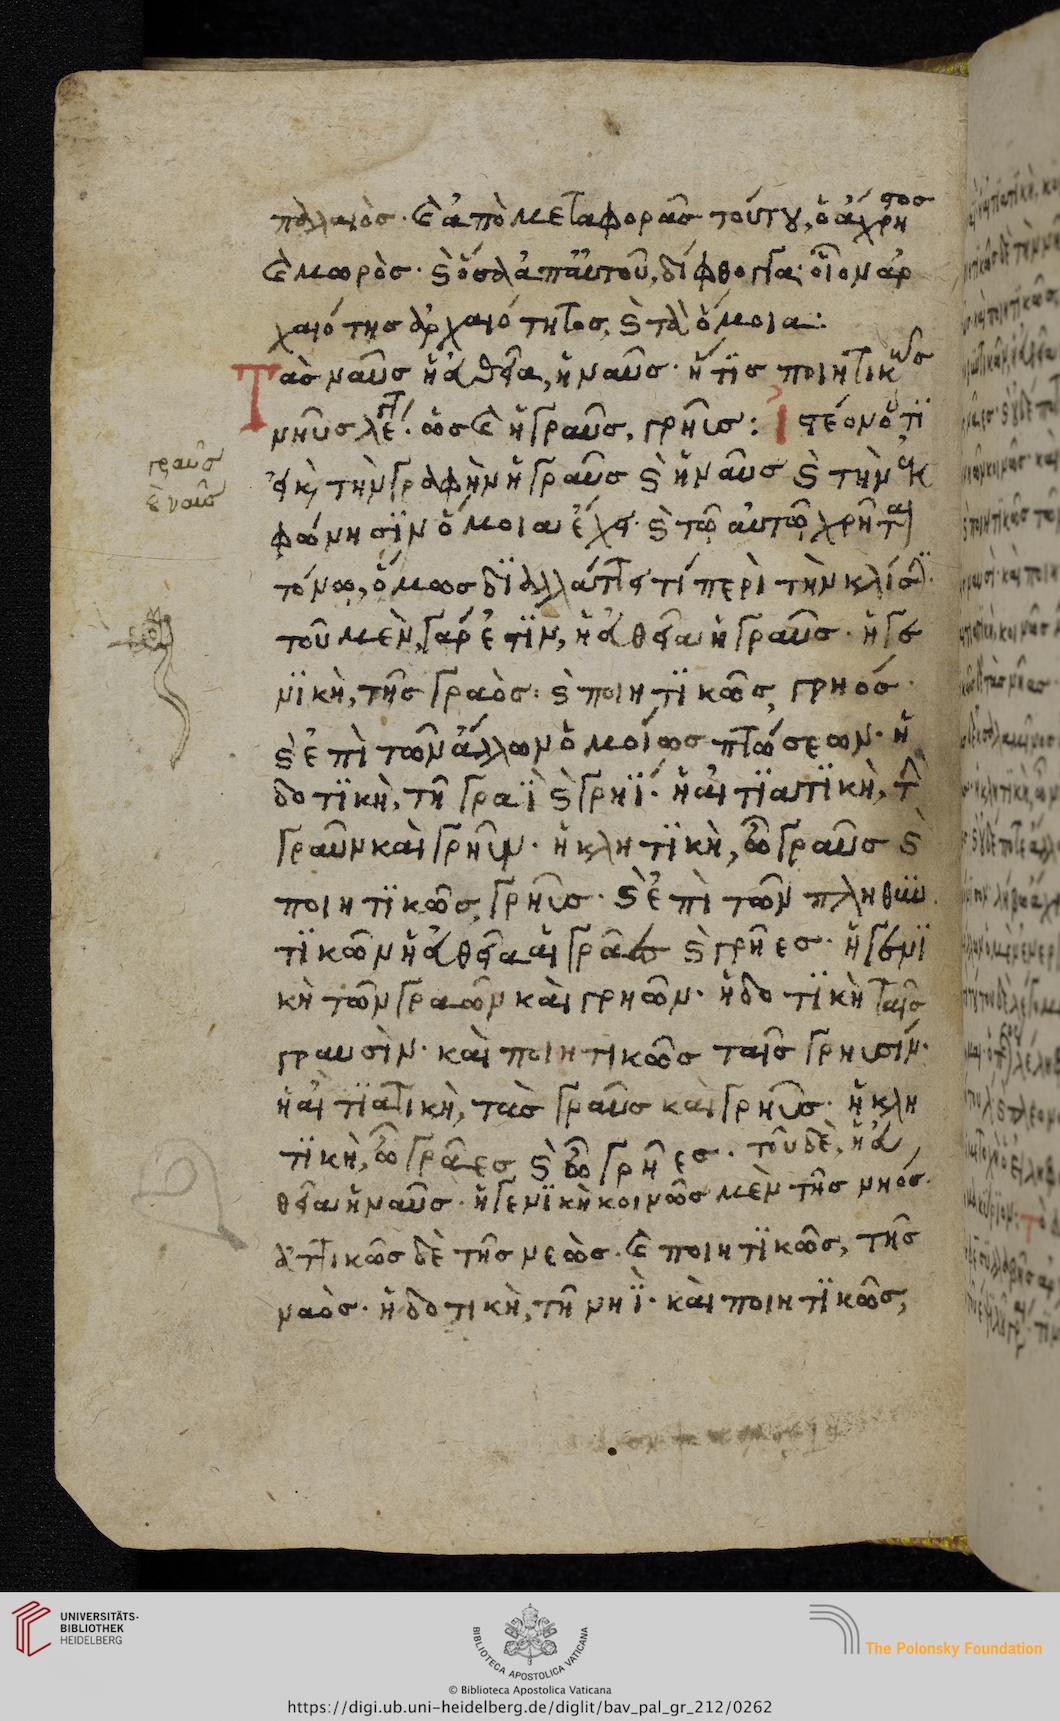 παλαιός· καὶ ἀπὸ μεταφορᾶς τούτου, ὁ ἄχρηστος
καὶ μωρός· καὶ ὅσα ἀπ' αὐτοῦ, δίφθογγα· οἷον ἀρ
χαιότης ἀρχαιότητος, καὶ τὰ ὅμοια:
Τὰς ναῦς ἡ εὐθεῖα, ἡ ναῦς· ἥτις ποιητικῶς
νηῦς λέγεται· ὡς καὶ ἡ γραῦς, γρηῦς: Ἰστέον ὅτι
γραῦς
καὶ ναῦς
τὴν γραφὴν ἡ γραῦς καὶ ἡ ναῦς καὶ τὴν ἐκ
φώνησιν ὅμοια ἔχει· καὶ τῷ αὐτῷ χρῆται
τόνῳ, ὅμως διαλλάττει τί περὶ τὴν κλίσιν·
τοῦ μὲν γάρ ἐστιν, ἡ εὐθεῖα ἡ γραῦς· ἡ γε
νικὴ, τῆς γραός· καὶ ποιητικῶς, γρηός·
καὶ ἐπὶ τῶν ἄλλων ὁμοίως πτώσεων· ἡ
δοτικὴ, τῇ γραῒ καὶ γρηΐ· ἡ αἰτιατικὴ, τὴν
γραῦν καὶ γρηῦν· ἡ κλητικὴ, ὦ γραῦς καὶ
ποιητικῶς, γρηῦς· καὶ ἐπὶ τῶν πληθυν
τικῶν ἡ εὐθεῖα αἱ γρᾶες καὶ γρῆες· ἡ γενι
κὴ τῶν γραῶν καὶ γρηῶν· ἡ δοτικὴ ταῖς
γραυσίν· καὶ ποιητικῶς ταῖς γρηυσίν·
ἡ αἰτιατικὴ, τὰς γραῦς καὶ γρηῦς· ἡ κλη
τικὴ, ὦ γρᾶες καὶ ὦ γρῆες· τοῦ δὲ, ἡ εὐ
θεῖα ἡ ναῦς· ἡ γενικὴ κοινῶς μὲν τῆς νηός·
ἀττικῶς δὲ τῆς νεώς· καὶ ποιητικῶς, τῆς
ναός· ἡ δοτικὴ, τῇ νηΐ· καὶ ποιητικῶς,
UNIVERSITÄTS-
BIBLIOTHEK
HEIDELBERG
BIBLIOTECA APOSTOLICA VATICANA
The Polonsky Foundation
© Biblioteca Apostolica Vaticana
https://digi.ub.uni-heidelberg.de/diglit/bav_pal_gr_212/0262